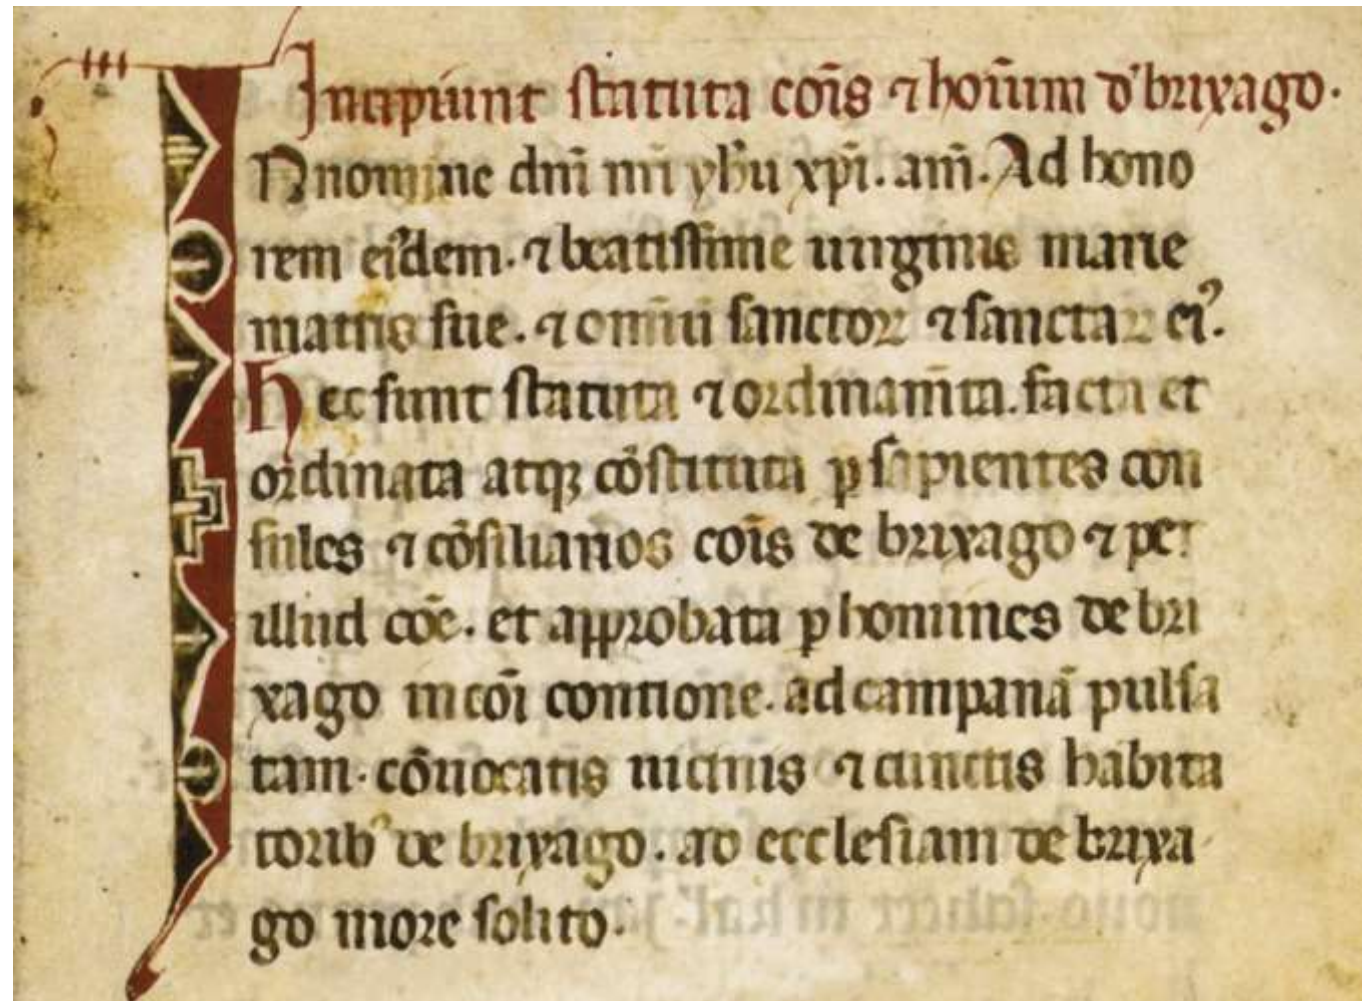 Incipiunt statuta cōis ⁊ hoīum d' brixago.
N nomine dn̄i nr̄i yh̄u xp̄i. am̄. Ad hono
rem eiꝰdem. ⁊ beatissime uirginis marie
matris sue. ⁊ omīū sanctoꝝ ⁊ sanctaꝝ eiꝰ.
Hec sunt statuta ⁊ ordinam̄ta. facta et
ordinata atqꝫ cōstituta ꝑ sapientes con
sules ⁊ cōsiliarios cōis de brixago ⁊ per
illud cōe. et approbata ꝑ homines de bri
xago in cōi contione. ad campanā pulsa
tam. cōuocatis uicinis ⁊ cunctis habita
toribꝰ de brixago. ad ecclesiam de brixa
go more solito.